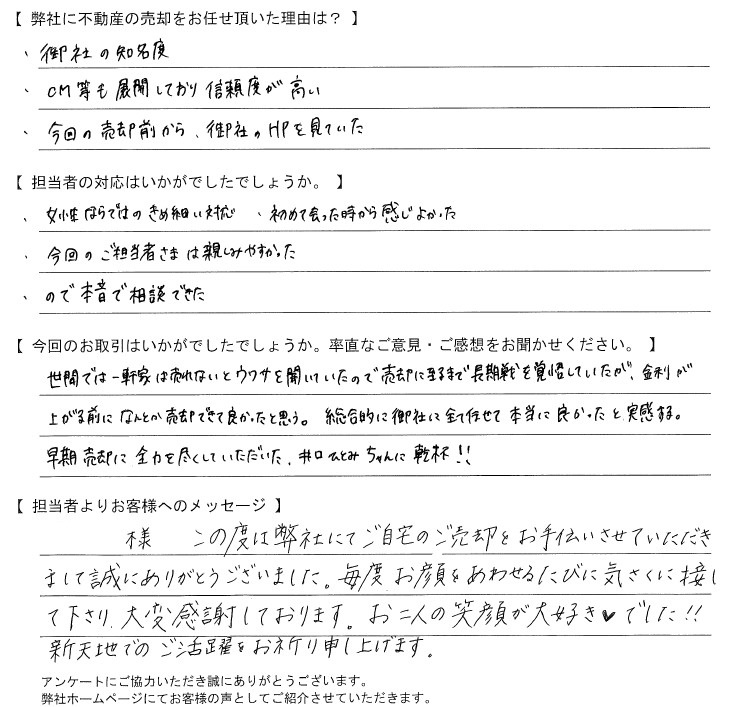 【 弊社に不動産の売却をお任せ頂いた理由は？ 】
、御社の知名度
、CM等も展開しており信頼度が高い
、今回の売却前から、御社のHPを見ていた
【 担当者の対応はいかがでしたでしょうか。 】
、女性ならではのきめ細い対応 、初めて会った時から感じよかった
、今回のご担当者さまは親しみやすかった
、ので本音で相談できた
【 今回のお取引はいかがでしたでしょうか。率直なご意見・ご感想をお聞かせください。 】
世間では一軒家は売れないとウワサを聞いていたので売却に至るまで長期戦を覚悟していたが、金利が
上がる前になんとか売却できて良かったと思う。総合的に御社に全て任せて本当に良かったと実感する。
早期売却に全力を尽くしていただいた、井口ひとみちゃんに乾杯!!
【 担当者よりお客様へのメッセージ 】
様 この度は弊社にてご自宅のご売却をお手伝いさせていただき
まして誠にありがとうございました。毎度お顔をあわせるたびに気さくに接し
て下さり、大変感謝しております。お二人の笑顔が大好き♥でした!!
新天地でのご活躍をお祈り申し上げます。
アンケートにご協力いただき誠にありがとうございます。
弊社ホームページにてお客様の声としてご紹介させていただきます。